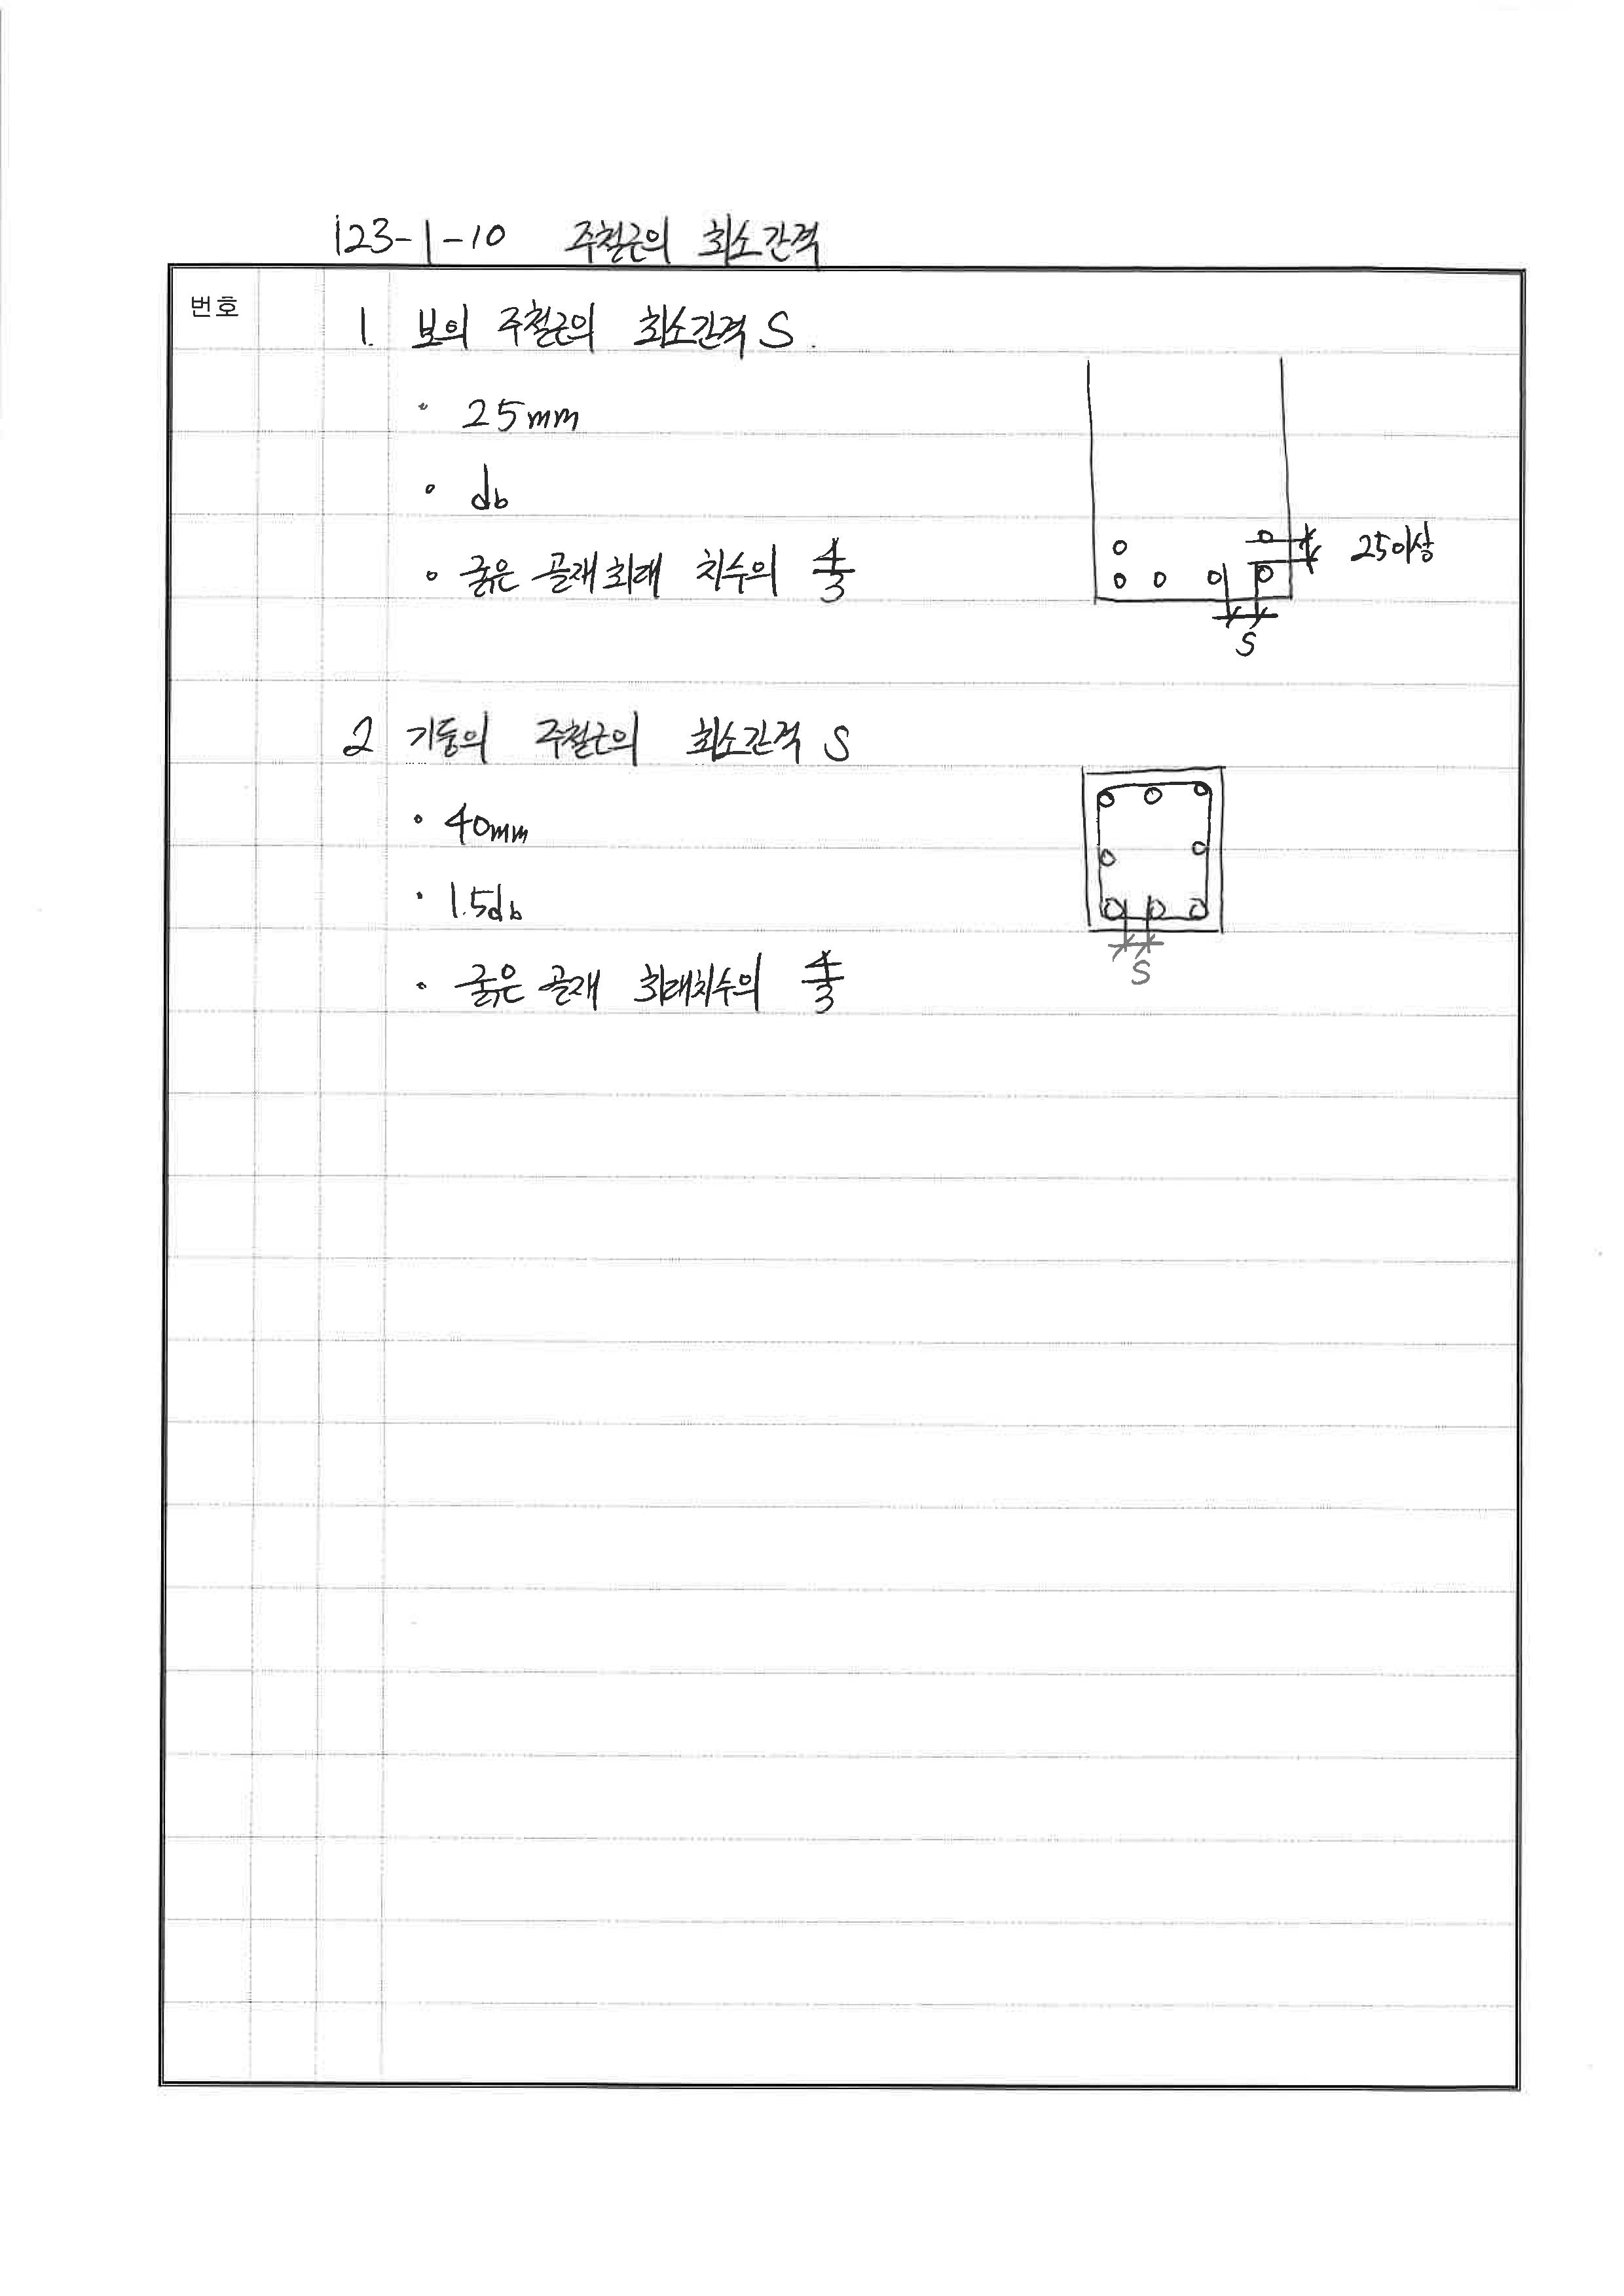 123-1-10 주철근의 최소간격
번호
1. 보의 주철근의 최소간격 S.
· 25mm
· db
· 굵은 골재 최대 치수의 4/3
25이상
S
2 기둥의 주철근의 최소간격 S
· 40mm
· 1.5db
· 굵은 골재 최대치수의 4/3
S